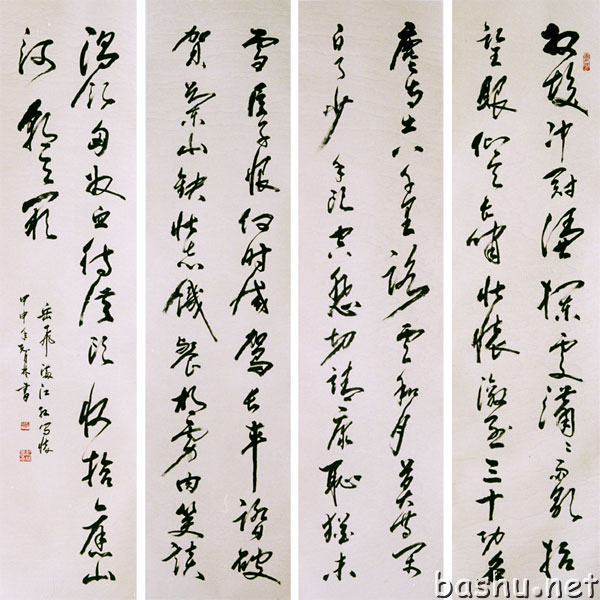 怒髮冲冠凭栏处潇々雨歇抬
望眼仰天长啸壮怀激烈三十功名
塵与土八千里路云和月莫等闲
白了少年头空悲切靖康耻犹未
雪臣子恨何时灭驾长车踏破
贺兰山缺壮志饥餐胡虏肉笑谈
渴饮匈奴血待从头收拾舊山
河朝天阙
岳飞满江红写怀
甲申年 书
bashu.net